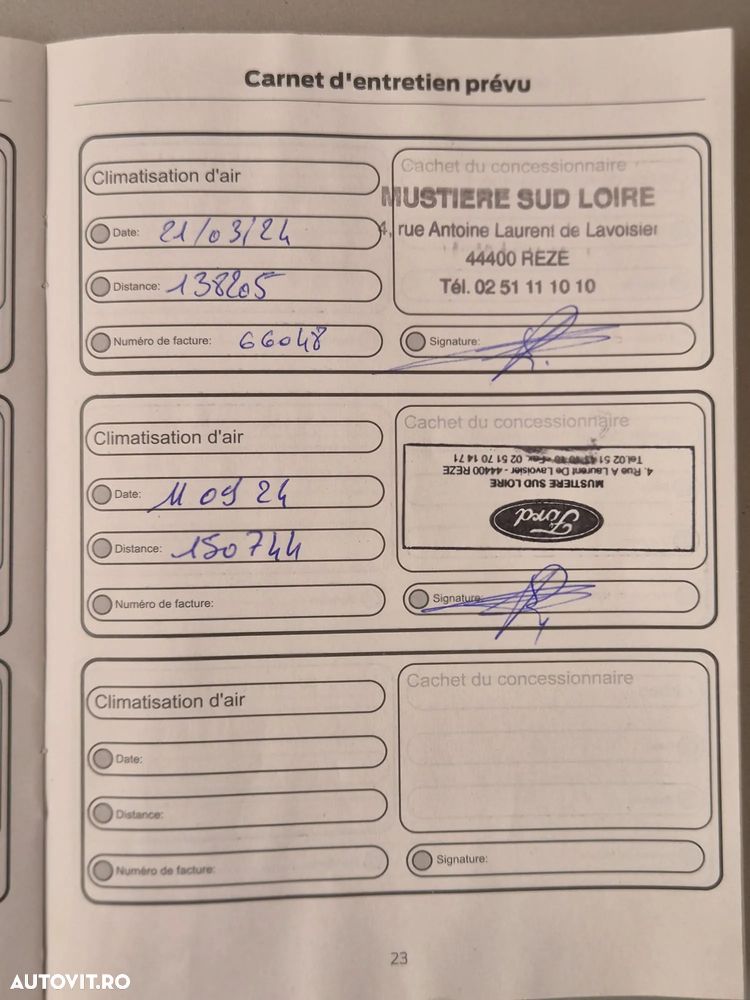 Carnet d'entretien prévu
Climatisation d'air
Date: 21/03/24
Distance: 138205
Numéro de facture: 66048
Cachet du concessionnaire
MUSTIERE SUD LOIRE
4, rue Antoine Laurent de Lavoisier
44400 REZE
Tél. 02 51 11 10 10
Signature:
Climatisation d'air
Date: 11 09 24
Distance: 150744
Numéro de facture:
Cachet du concessionnaire
Ford
MUSTIERE SUD LOIRE
4, Rue A Laurent De Lavoisier - 44400 REZE
Tel.02 51 11 10 10 - Fax 02 51 70 14 71
Signature:
Climatisation d'air
Date:
Distance:
Numéro de facture:
Cachet du concessionnaire
Signature:
23
AUTOVIT.RO